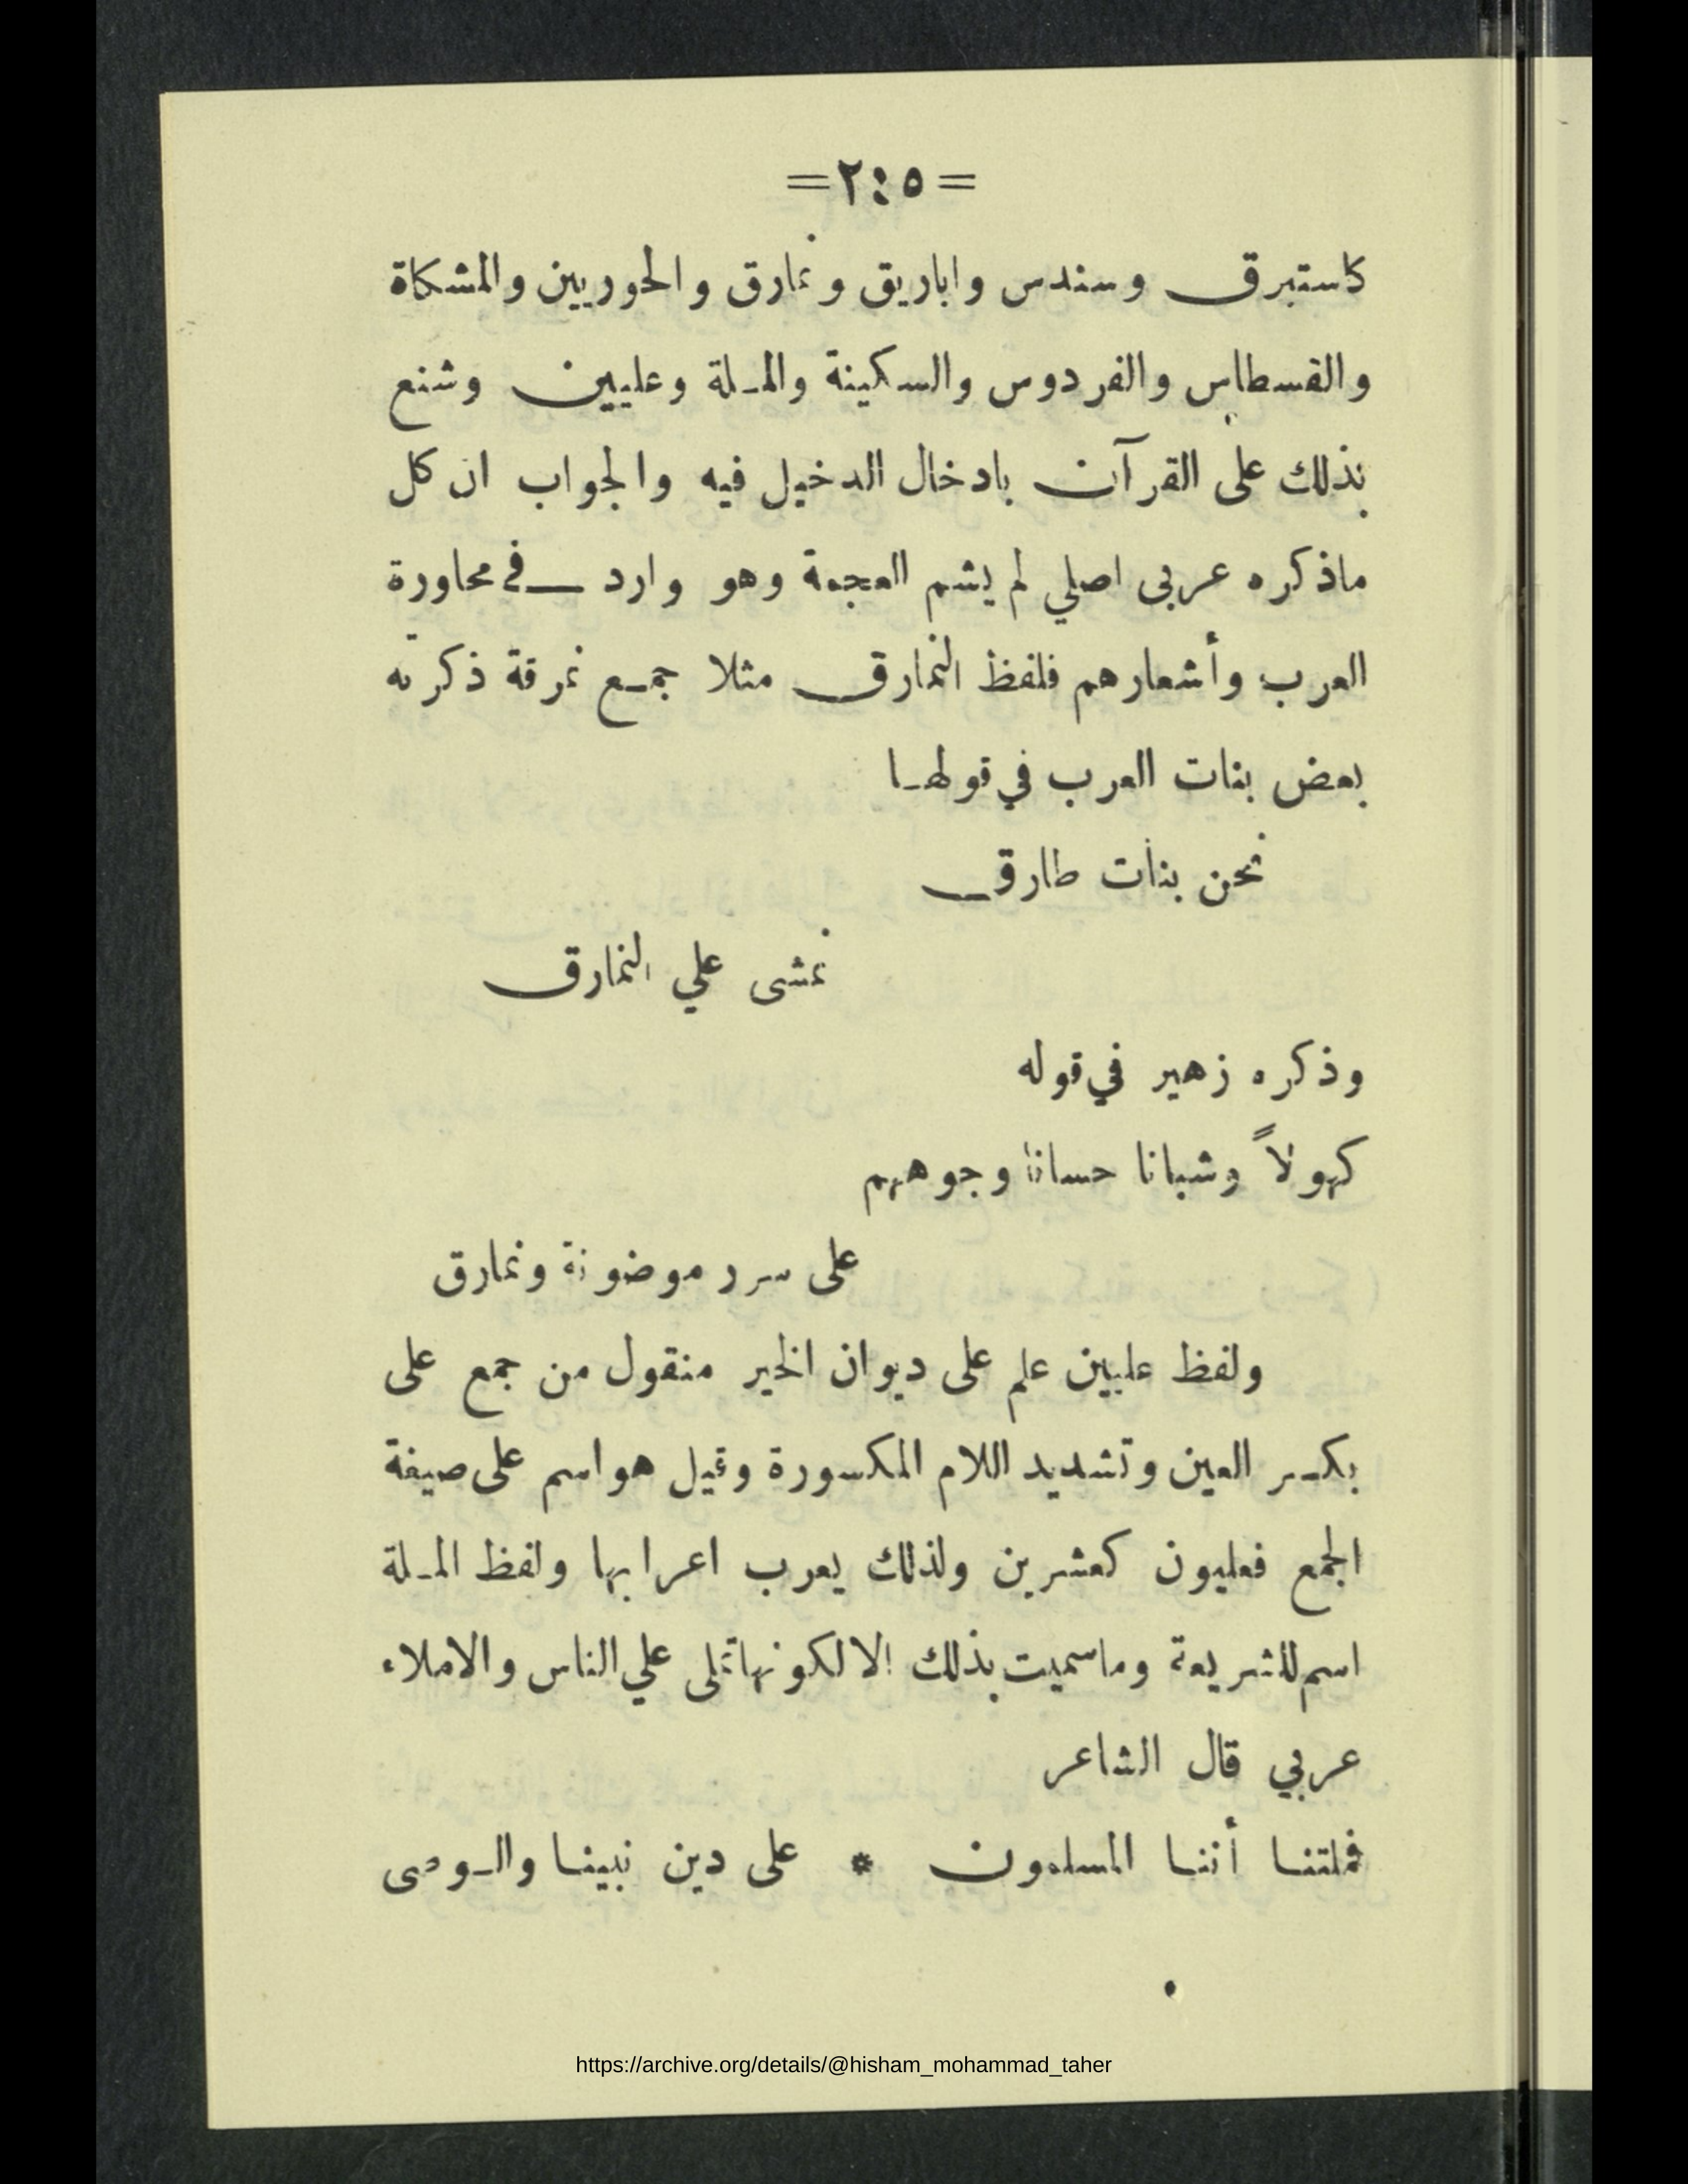 =٢٤٥=
كاستبرق وسندس واباريق ونمارق والحوريين والمشكاة
والقسطاس والفردوس والسكينة والملة وعليين وشنع
بذلك على القرآن بادخال الدخيل فيه والجواب ان كل
ماذكره عربى اصلي لم يشم العجمة وهو وارد في محاورة
العرب وأشعارهم فلفظ النمارق مثلا جمع نمرقة ذكرته
بعض بنات العرب في قولها
نحن بنات طارق
نمشى علي النمارق
وذكره زهير في قوله
كهولاً وشبانا حسانا وجوههم
على سرر موضونة ونمارق
ولفظ عليين علم على ديوان الخير منقول من جمع على
بكسر العين وتشديد اللام المكسورة وقيل هو اسم على صيغة
الجمع فعليون كعشرين ولذلك يعرب اعرابها ولفظ الملة
اسم للشريعة وماسميت بذلك الا لكونها تملى علي الناس والاملاء
عربي قال الشاعر
فملتنا أننا المسلمون * على دين نبينا والوصى
https://archive.org/details/@hisham_mohammad_taher